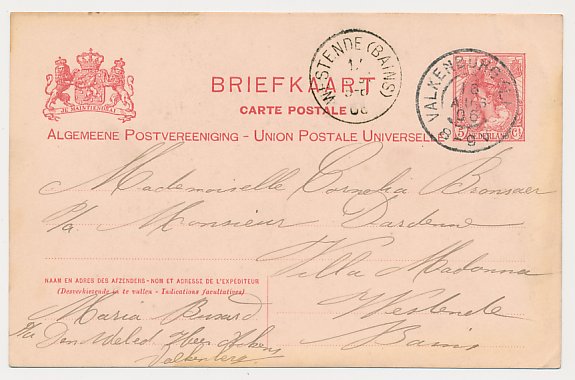 WESTENDE (BAINS)
08
VALKENBURG
AUG
8-9
BRIEFKAART
CARTE POSTALE
JE MAINTIENDRAI
ALGEMEENE POSTVEREENIGING - UNION POSTALE UNIVERSELLE
5 NEDERLAND Ct
Mademoiselle Cornelia Bronsaer
p/a. Monsieur Dardenne
Villa Madonna
Westende
Bains
NAAM EN ADRES DES AFZENDERS - NOM ET ADRESSE DE L'EXPÉDITEUR
(Desverkiezende in te vullen - Indications facultatives)
Maria
p/a Den Weled. Heer
Valkenberg